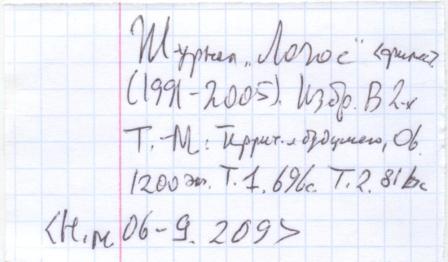 Журнал „Логос“ <филос>.
(1991-2005). Избр. В 2-х
т. -М: Террит. будущего, 06.
1200 эк. Т.1. 696с. Т.2. 816с
<Н.м 06-9. 209>